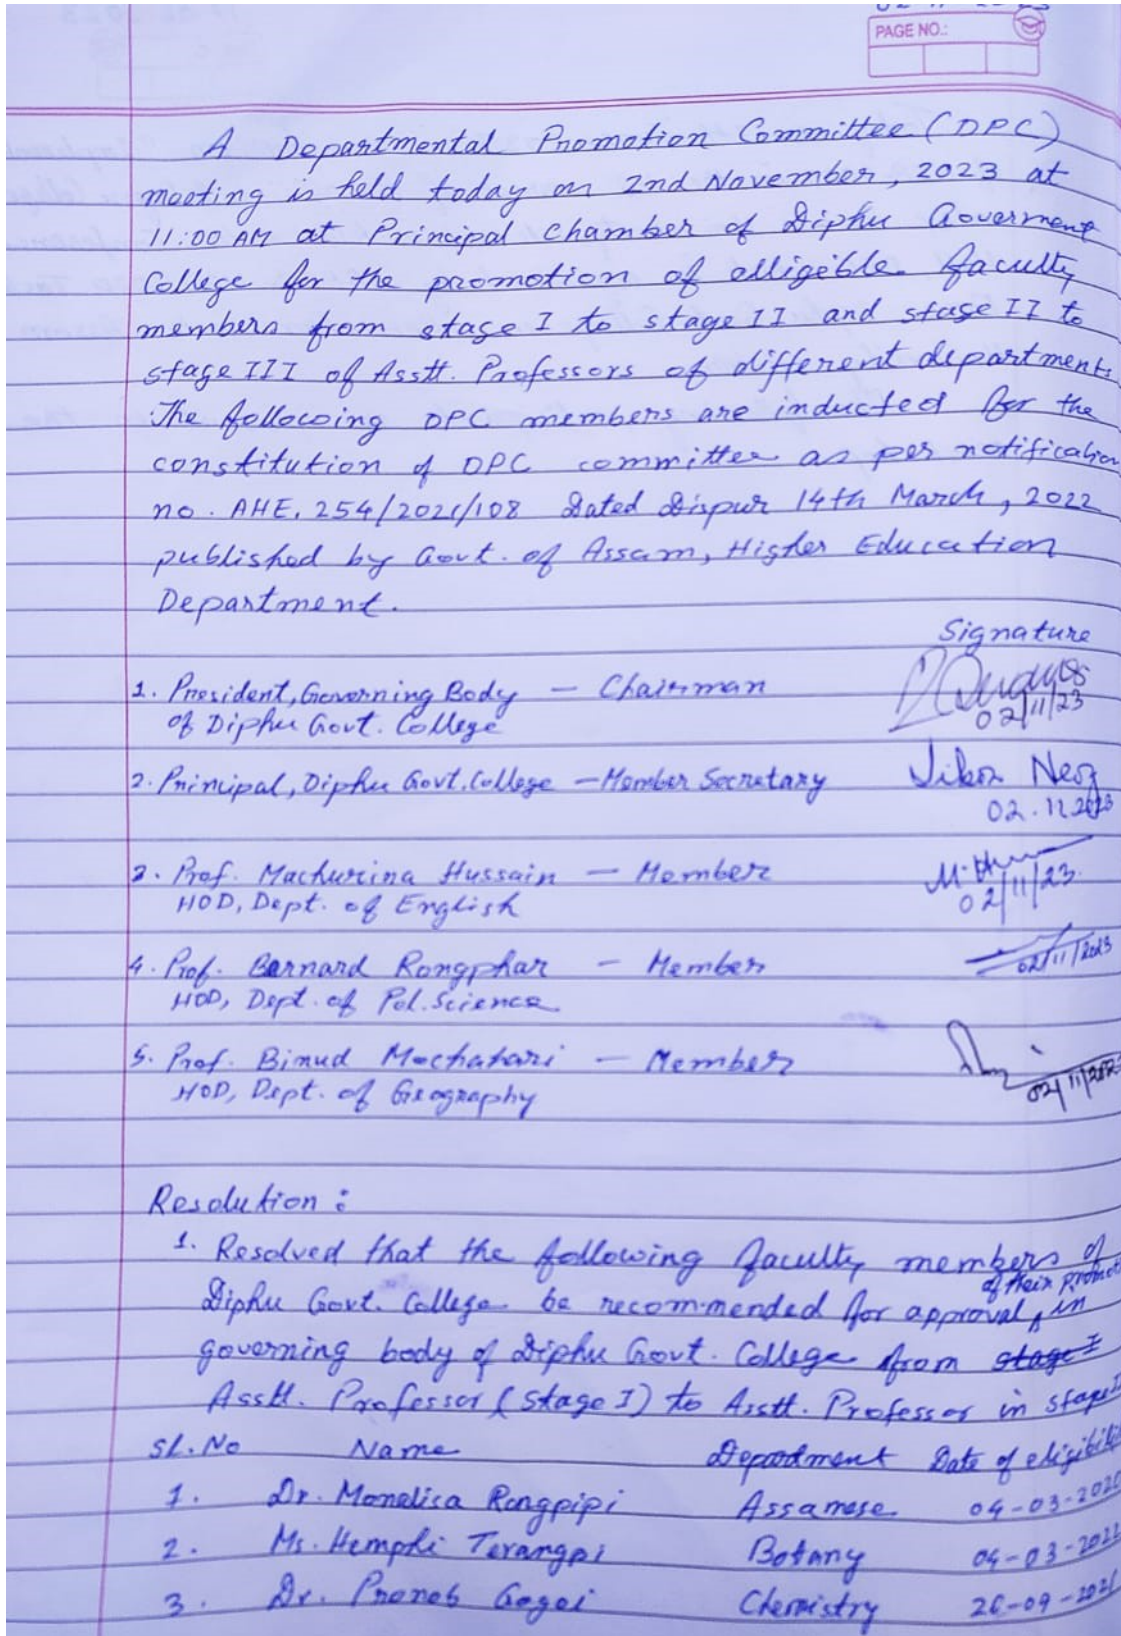 02-11-2023
PAGE NO.:
A Departmental Promotion Committee (DPC)
meeting is held today on 2nd November, 2023 at
11:00 AM at Principal Chamber of Diphu Goverment
College for the promotion of elligible faculty
members from stage I to stage II and stage II to
stage III of Asstt. Professors of different departments.
The following DPC members are inducted for the
constitution of DPC committee as per notification
no. AHE. 254/2021/108 Dated Dispur 14th March, 2022
published by Govt. of Assam, Higher Education
Department.
Signature
1. President, Governing Body — Chairman
of Diphu Govt. College
02/11/23
2. Principal, Diphu Govt. College — Member Secretary
02.11.2023
3. Prof. Machurina Hussain — Member
HOD, Dept. of English
02/11/23
4. Prof. Barnard Rongphar — Member
HOD, Dept. of Pol. Science
02/11/2023
5. Prof. Binud Mochahari — Member
HOD, Dept. of Geography
02/11/2023
Resolution :
1. Resolved that the following faculty members of
of their promot
Diphu Govt. College be recommended for approval in
governing body of Diphu Govt. College from stage I
Asstt. Professor (Stage I) to Asstt. Professor in stage II
Sl. No Name Depodment Date of eligibili
1. Dr. Monalisa Rongpipi Assamese 04-03-
2. Ms. Hemphi Terangpi Botany 04-03-2022
3. Dr. Pronob Gogoi Chemistry 26-09-2021